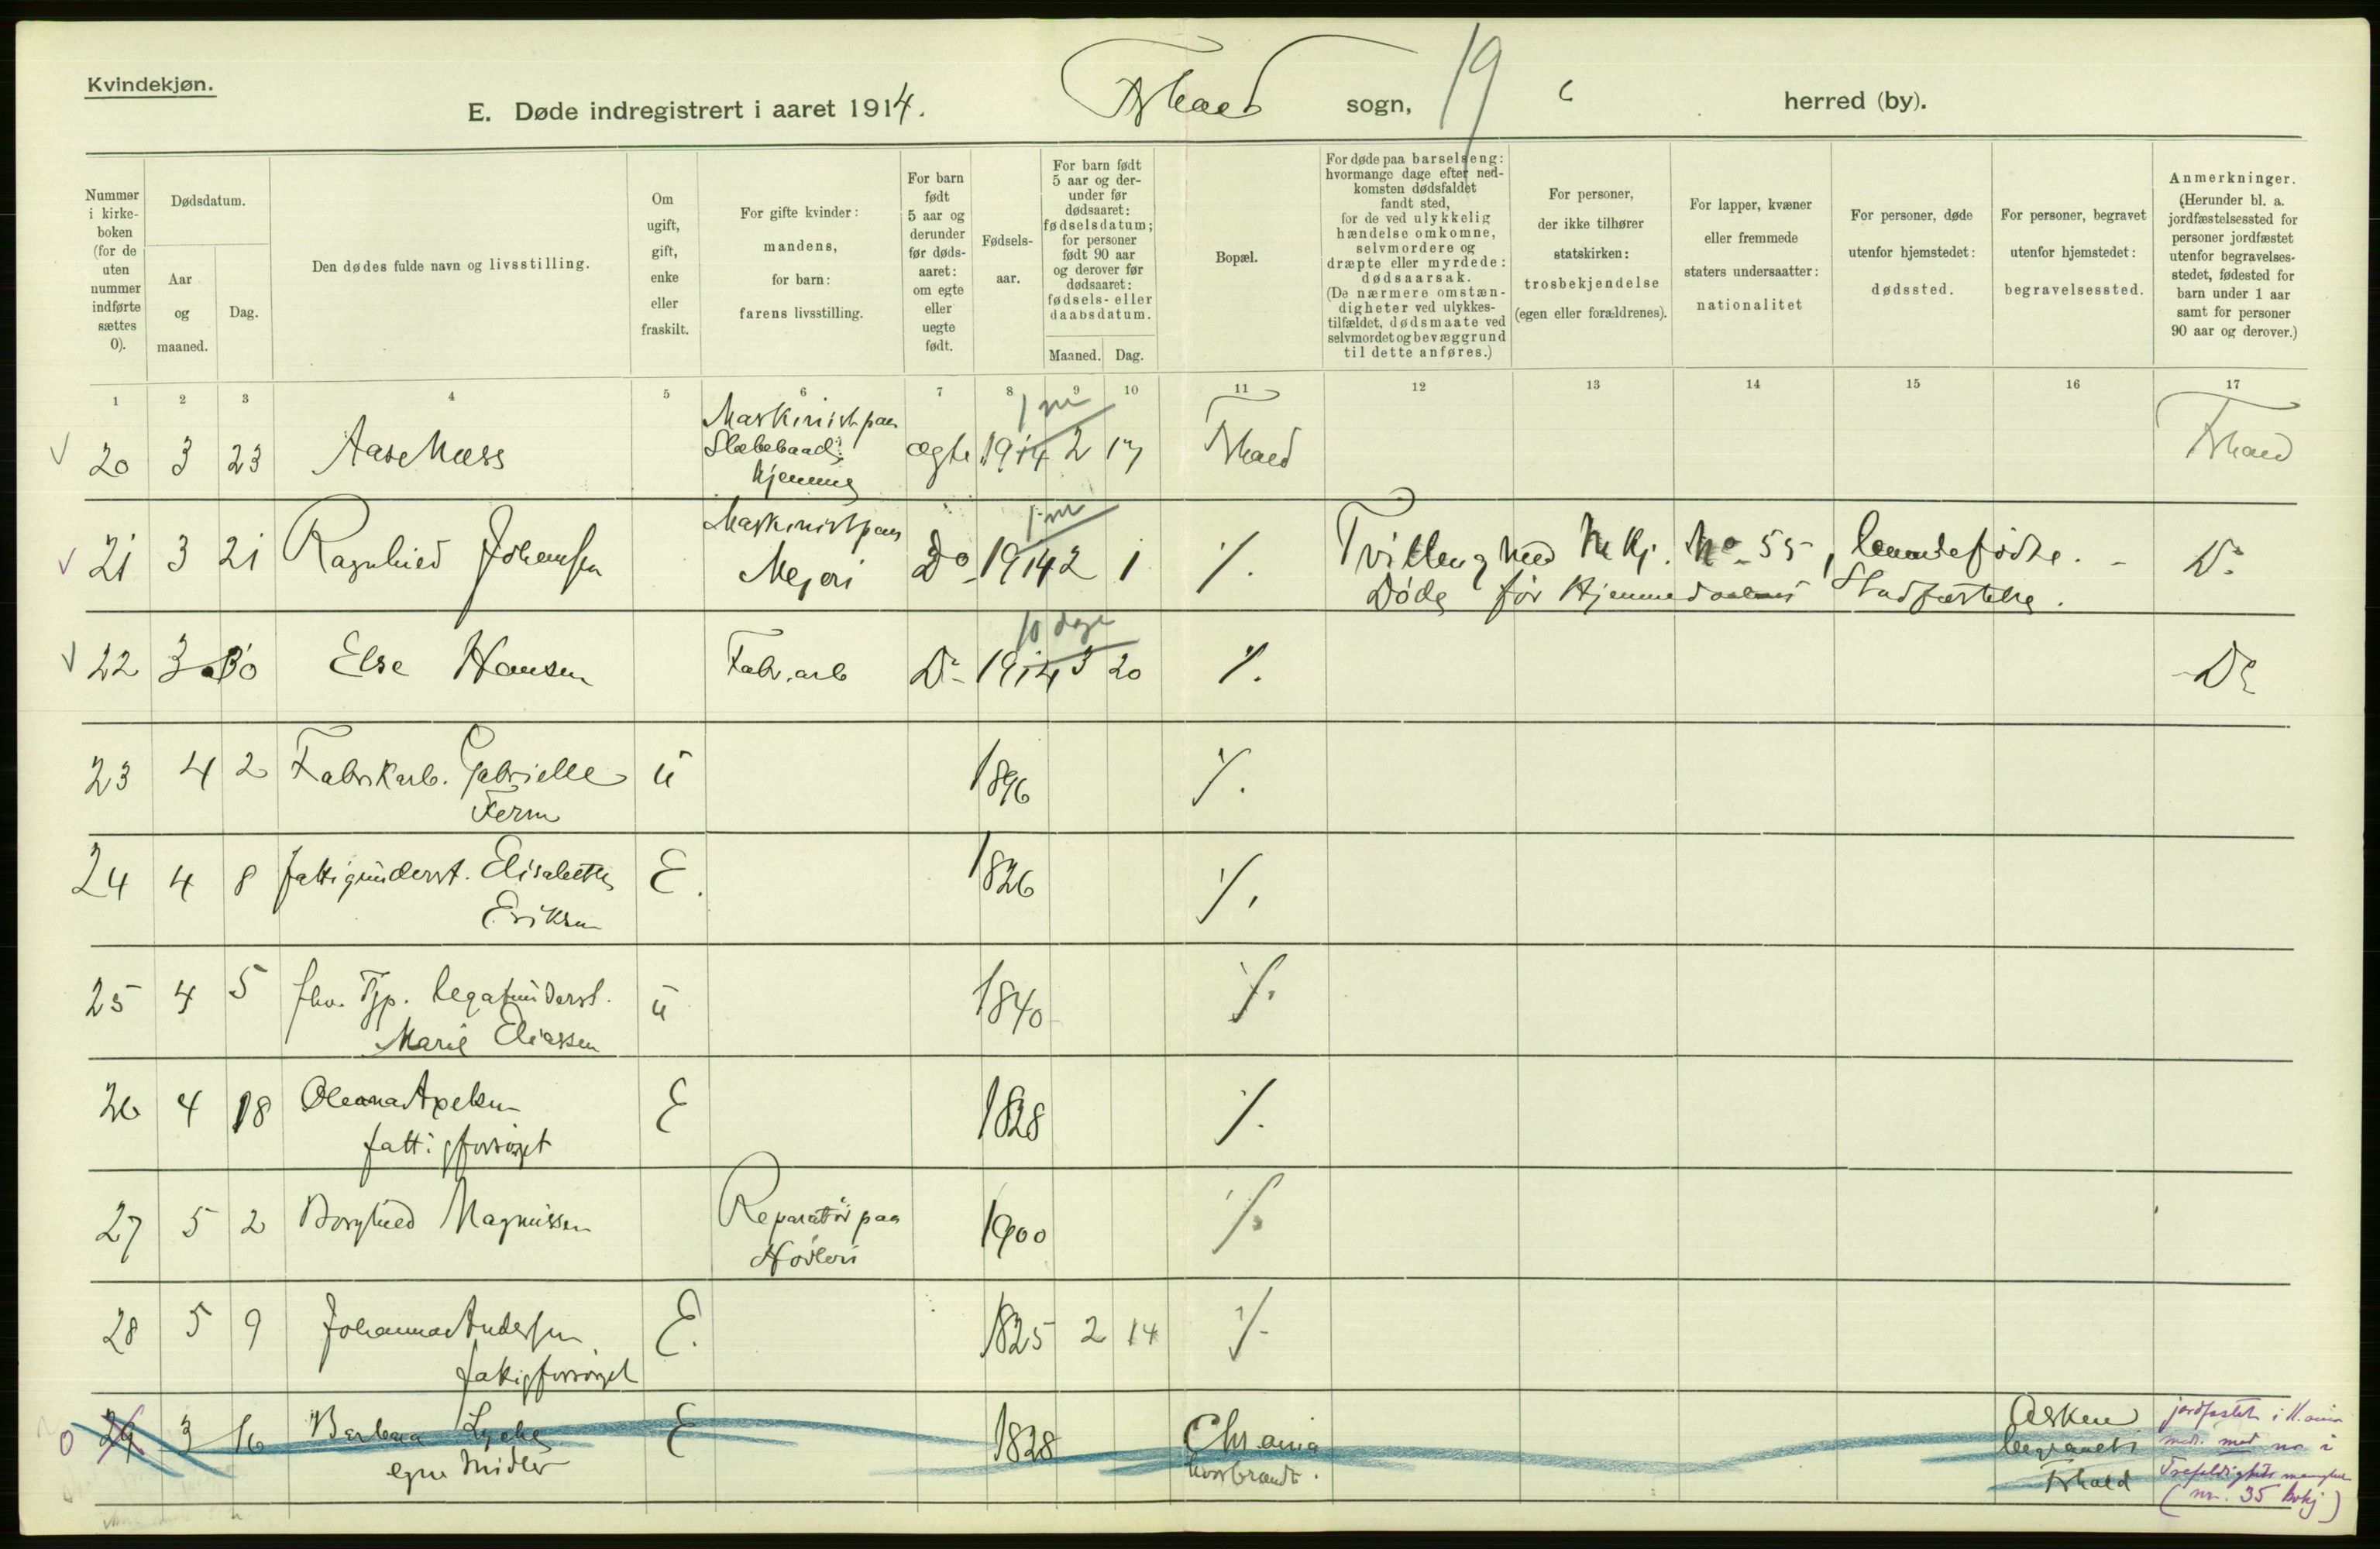 Kvindekjøn.
E. Døde indregistrert i aaret 1914. Fshald sogn, 19 herred (by).
Nummer i kirkeboken (for de uten nummer indførte sættes 0).
Dødsdatum.
Aar og maaned.
Dag.
Den dødes fulde navn og livsstilling.
Om ugift, gift, enke eller fraskilt.
For gifte kvinder: mandens, for barn: farens livsstilling.
For barn født 5 aar og derunder før dødsaaret: om egte eller uegte født.
Fødselsaar.
For barn født 5 aar og derunder før dødsaaret: fødselsdatum; for personer født 90 aar og derover før dødsaaret: fødsels- eller daabsdatum.
Maaned. Dag.
Bopæl.
For døde paa barselseng: hvormange dage efter nedkomsten dødsfaldet fandt sted, for de ved ulykkelig hændelse omkomne, selvmordere og dræpte eller myrdede: dødsaarsak. (De nærmere omstændigheter ved ulykkestilfældet, dødsmaate ved selvmordet og bevæggrund til dette anføres.)
For personer, der ikke tilhører statskirken: trosbekjendelse (egen eller forældrenes).
For lapper, kvæner eller fremmede staters undersaatter: nationalitet
For personer, døde utenfor hjemstedet: dødssted.
For personer, begravet utenfor hjemstedet: begravelsessted.
Anmerkninger. (Herunder bl. a. jordfæstelsessted for personer jordfæstet utenfor begravelsesstedet, fødested for barn under 1 aar samt for personer 90 aar og derover.)
1 2 3 4 5 6 7 8 9 10 11 12 13 14 15 16 17
20 3 23 Aase Næss Maskinist paa Slæbebaad hjemme ægte 1914 2 17 1 m Fshald Fshald
21 3 21 Ragnhild Johansen Maskinist paa Mejeri Do 1914 2 1 1 m ʺ/. Tvilling med M Kj. No 55, levendefødte. Do
Døde før Hjemmedaabens Stadfæstelse.
22 3 30 Else Hansen Fabr.arb Do 1914 3 20 10 dage ʺ/. Do
23 4 2 Fabrikarb. Gabrielle Ferm u 1896 ʺ/.
24 4 8 fattigunderst. Elisabeth Eriksen E. 1826 ʺ/.
25 4 5 fhv. Tjp. legatunderst. Marie Eliassen u 1840 ʺ/.
26 4 18 Oleana Axelsen fattigforsørget E 1828 ʺ/.
27 5 2 Borghild Magnussen Reparatør paa Høvleri 1900 ʺ/.
28 5 9 Johanna Andersen fattigforsørget E. 1825 2 14 ʺ/.
0 29 3 16 Barbara Lyche egne Midler E 1828 Chr.ania hvor brændt. Asken begravet i Fshald jordfæstet i Kr.ania med no i Trefoldighets menighet (nr. 35 kvkj)